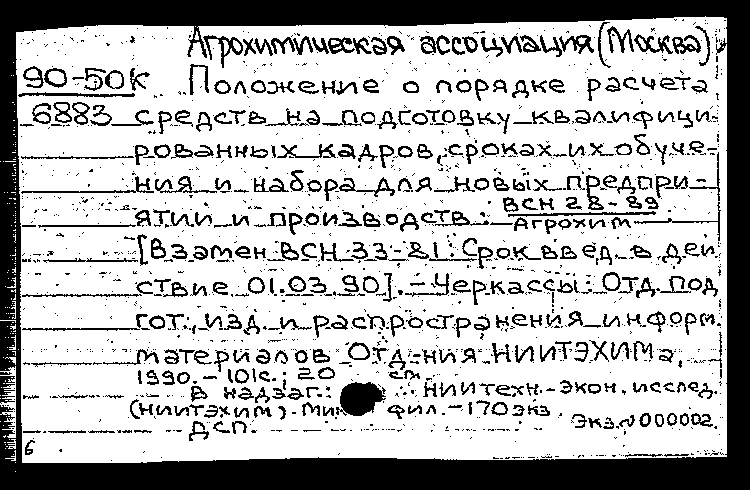 Агрохимическая ассоциация (Москва)
90-50к Положение о порядке расчета
6883 средств на подготовку квалифици-
рованных кадров, сроках их обуче-
ния и набора для новых предпри-
ятий и производств: ВСН 28-89
Агрохим
[Взамен ВСН 33-81. Срок введ. в дей
ствие 01.03.90]. - Черкассы: Отд. под
гот., изд. и распространения информ.
материалов Отд-ния НИИТЭХИМа,
1990. - 101с.; 20 см.
В надзаг.: НИИ техн.-экон. исслед.
(НИИТЭХИМ). фил. - 170 экз.
ДСП. Экз. № 000002.
6